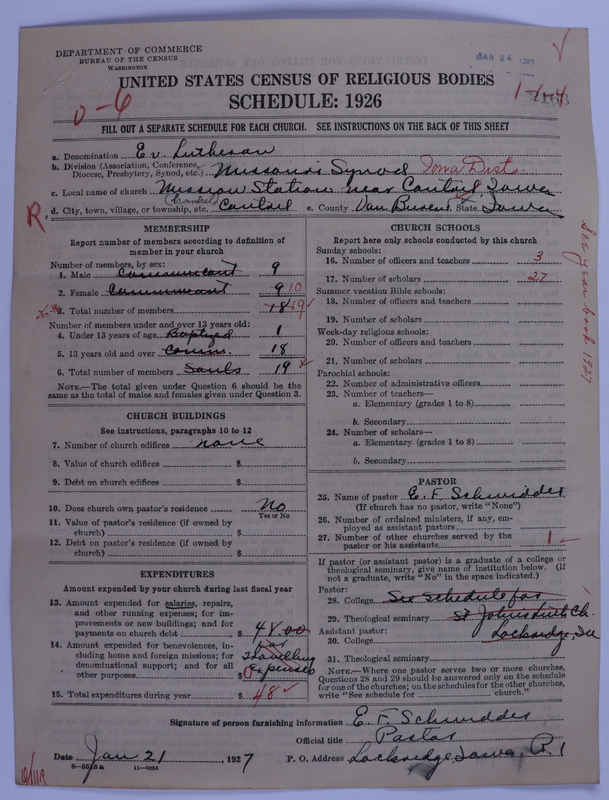 DEPARTMENT OF COMMERCE
BUREAU OF THE CENSUS
WASHINGTON
JAN 24 1927
UNITED STATES CENSUS OF RELIGIOUS BODIES
SCHEDULE: 1926
1-1-4
0-6
FILL OUT A SEPARATE SCHEDULE FOR EACH CHURCH. SEE INSTRUCTIONS ON THE BACK OF THIS SHEET
a. Denomination Ev. Lutheran
b. Division (Association, Conference, Diocese, Presbytery, Synod, etc.) Missouri Synod Iowa Dist.
c. Local name of church Mission Station near Cantril, Iowa
(Cantril)
d. City, town, village, or township, etc. Cantril e. County Van Buren State Iowa
R
MEMBERSHIP
Report number of members according to definition of member in your church
Number of members, by sex:
1. Male Communicant 9
2. Female Communicant 9 10
3. Total number of members 18 19
Number of members under and over 13 years old:
4. Under 13 years of age Baptized 1
5. 13 years old and over Comm. 18
6. Total number of members Souls 19
NOTE.—The total given under Question 6 should be the same as the total of males and females given under Question 3.
CHURCH BUILDINGS
See instructions, paragraphs 10 to 12
7. Number of church edifices none
8. Value of church edifices $
9. Debt on church edifices $
10. Does church own pastor's residence? No
Yes or No
11. Value of pastor's residence (if owned by church) $
12. Debt on pastor's residence (if owned by church) $
EXPENDITURES
Amount expended by your church during last fiscal year
13. Amount expended for salaries, repairs, and other running expenses; for improvements or new buildings; and for payments on church debt $ 48.00
14. Amount expended for benevolences, including home and foreign missions; for denominational support; and for all other purposes $ 0 for Travelling Expenses
15. Total expenditures during year $ 48
CHURCH SCHOOLS
Report here only schools conducted by this church
Sunday schools:
16. Number of officers and teachers 3
17. Number of scholars 27
Summer vacation Bible schools:
18. Number of officers and teachers
19. Number of scholars
Week-day religious schools:
20. Number of officers and teachers
21. Number of scholars
Parochial schools:
22. Number of administrative officers
23. Number of teachers—
a. Elementary (grades 1 to 8)
b. Secondary
24. Number of scholars—
a. Elementary (grades 1 to 8)
b. Secondary
See year book 1927
PASTOR
25. Name of pastor E. F. Schwidder
(If church has no pastor, write "None")
26. Number of ordained ministers, if any, employed as assistant pastors
27. Number of other churches served by the pastor or his assistants 1
If pastor (or assistant pastor) is a graduate of a college or theological seminary, give name of institution below. (If not a graduate, write "No" in the space indicated.)
Pastor:
28. College See Schedule for
29. Theological seminary St Johns Luth Ch.
Assistant pastor:
30. College Lockridge, Ia
31. Theological seminary
NOTE.—Where one pastor serves two or more churches, Questions 28 and 29 should be answered only on the schedule for one of the churches; on the schedules for the other churches, write "See schedule for church."
Signature of person furnishing information E. F. Schwidder
Official title Pastor
Date Jan 21, 1927 P. O. Address Lockridge, Iowa, R. 1
8—5518 a 11—9254